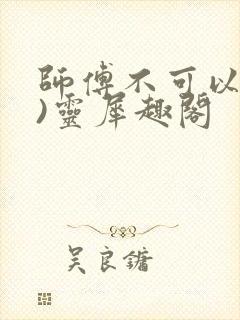 師傅不可以
)靈犀趣閣
吳良鏞